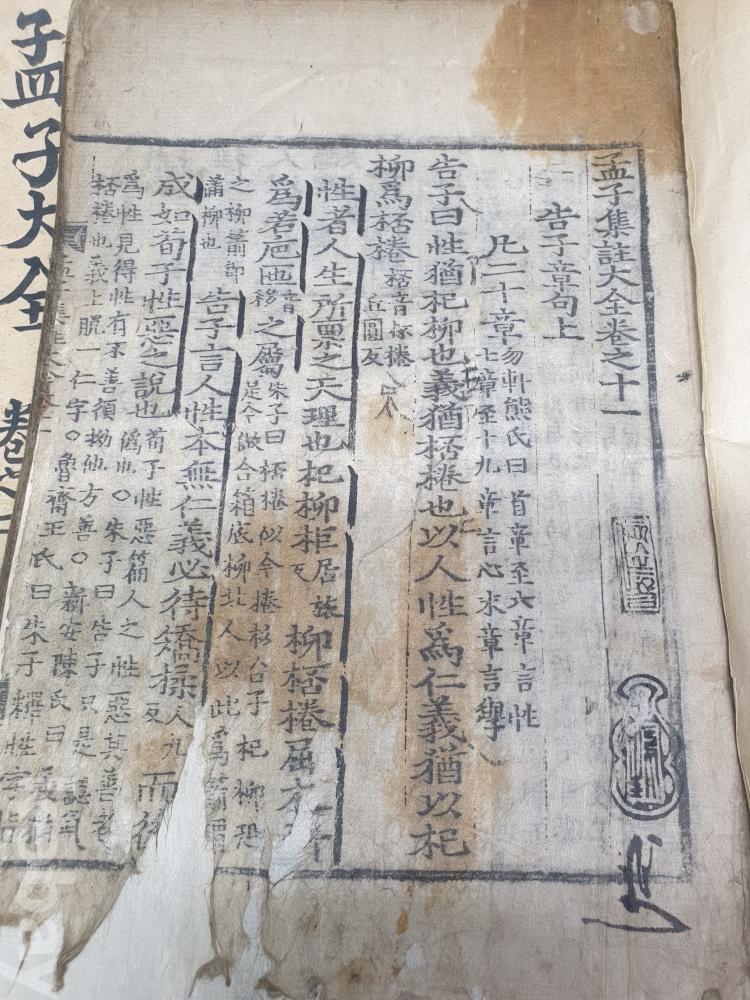 孟子集註大全卷之十一
告子章句上
凡二十章 勿軒熊氏曰首章至六章言性
七章至十九章言心末章言學
告子曰性猶杞柳也義猶桮棬也以人性爲仁義猶以杞
柳爲桮棬 桮音 棬
丘圓反
性者人生所稟之天理也杞柳柜 居
柳桮棬屈
爲若巵匜 音
移 之屬 朱子曰桮棬似今棬杉合子杞柳恐
是今做合箱底柳北人以此爲箭
之柳
蒲柳也 告子言人性本無仁義必待矯揉 而後
成如荀子性惡之說也 荀子性惡篇人之性惡其善者
僞也○朱子曰告子只是認氣
爲性見得性有不善須拗他方善○新安陳氏曰
桮棬也義上脫一仁字○魯齋王氏曰朱子釋性字
孟子大全